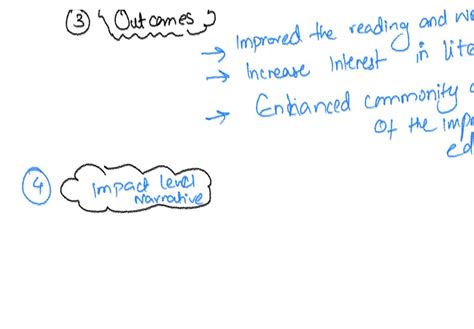 ③ Outcomes
→ Improved the reading and
→ Increase Interest in
→ Enhanced commonity
of the
④ Impact Level
Narrative